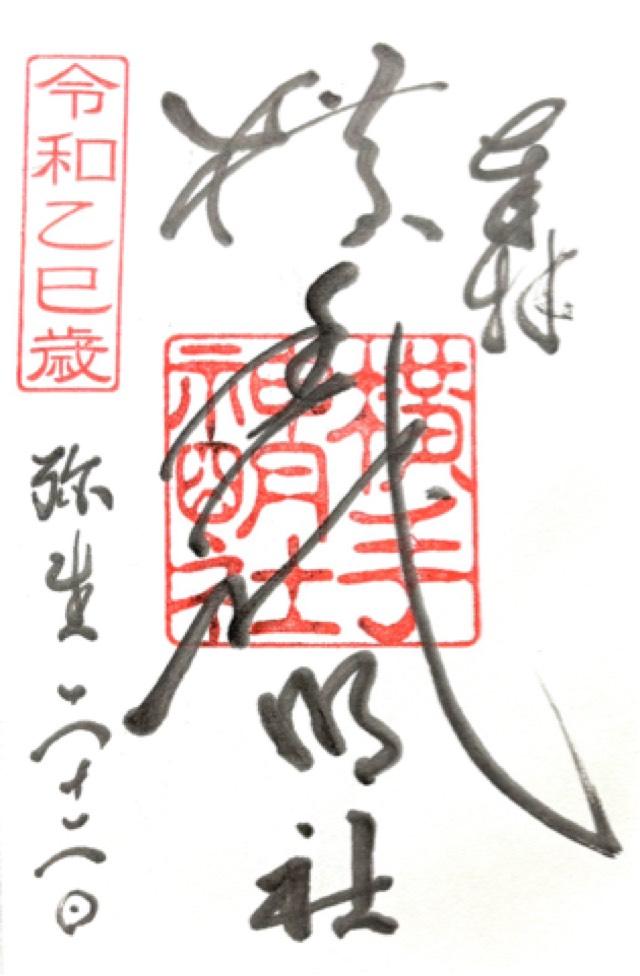 奉拝
横手神明社
横手
神明社
令和乙巳歳
弥生二十二日